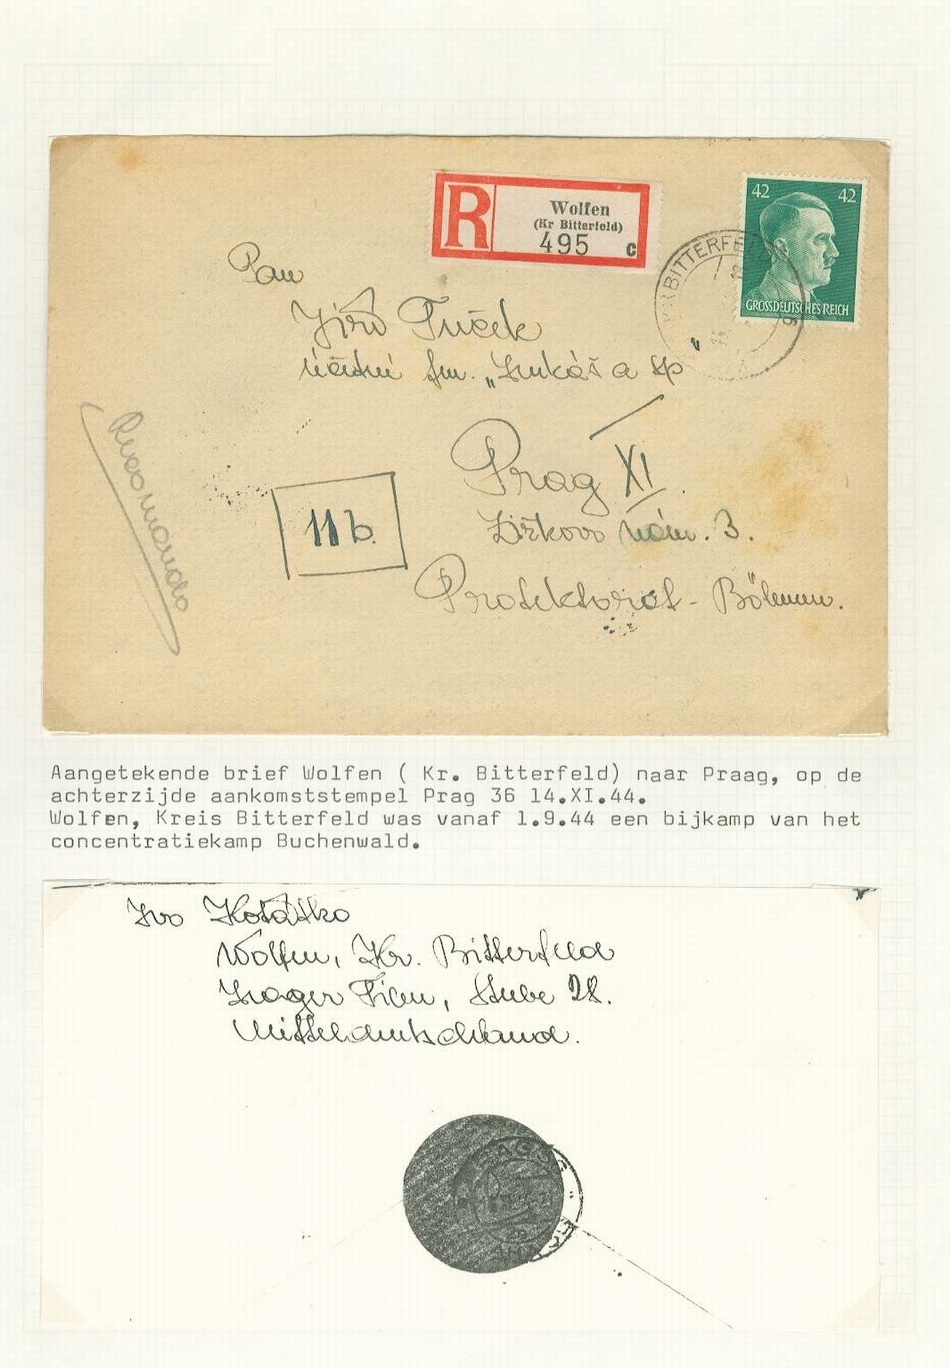 R
Wolfen
(Kr Bitterfeld)
495 c
42 42
GROSSDEUTSCHES REICH
BITTERFELD
Pan
Jiří Tuček
úřední fm. „Lukáš a sp"
Prag XI.
Žižkovo nám. 3.
Protektorat - Böhmen.
11b.
Recomando
Aangetekende brief Wolfen ( Kr. Bitterfeld) naar Praag, op de
achterzijde aankomststempel Prag 36 14.XI.44.
Wolfen, Kreis Bitterfeld was vanaf 1.9.44 een bijkamp van het
concentratiekamp Buchenwald.
Ivo Kotátko
Wolfen, Kr. Bitterfeld
Lager Film, Stube 28.
Mitteldeutschland.